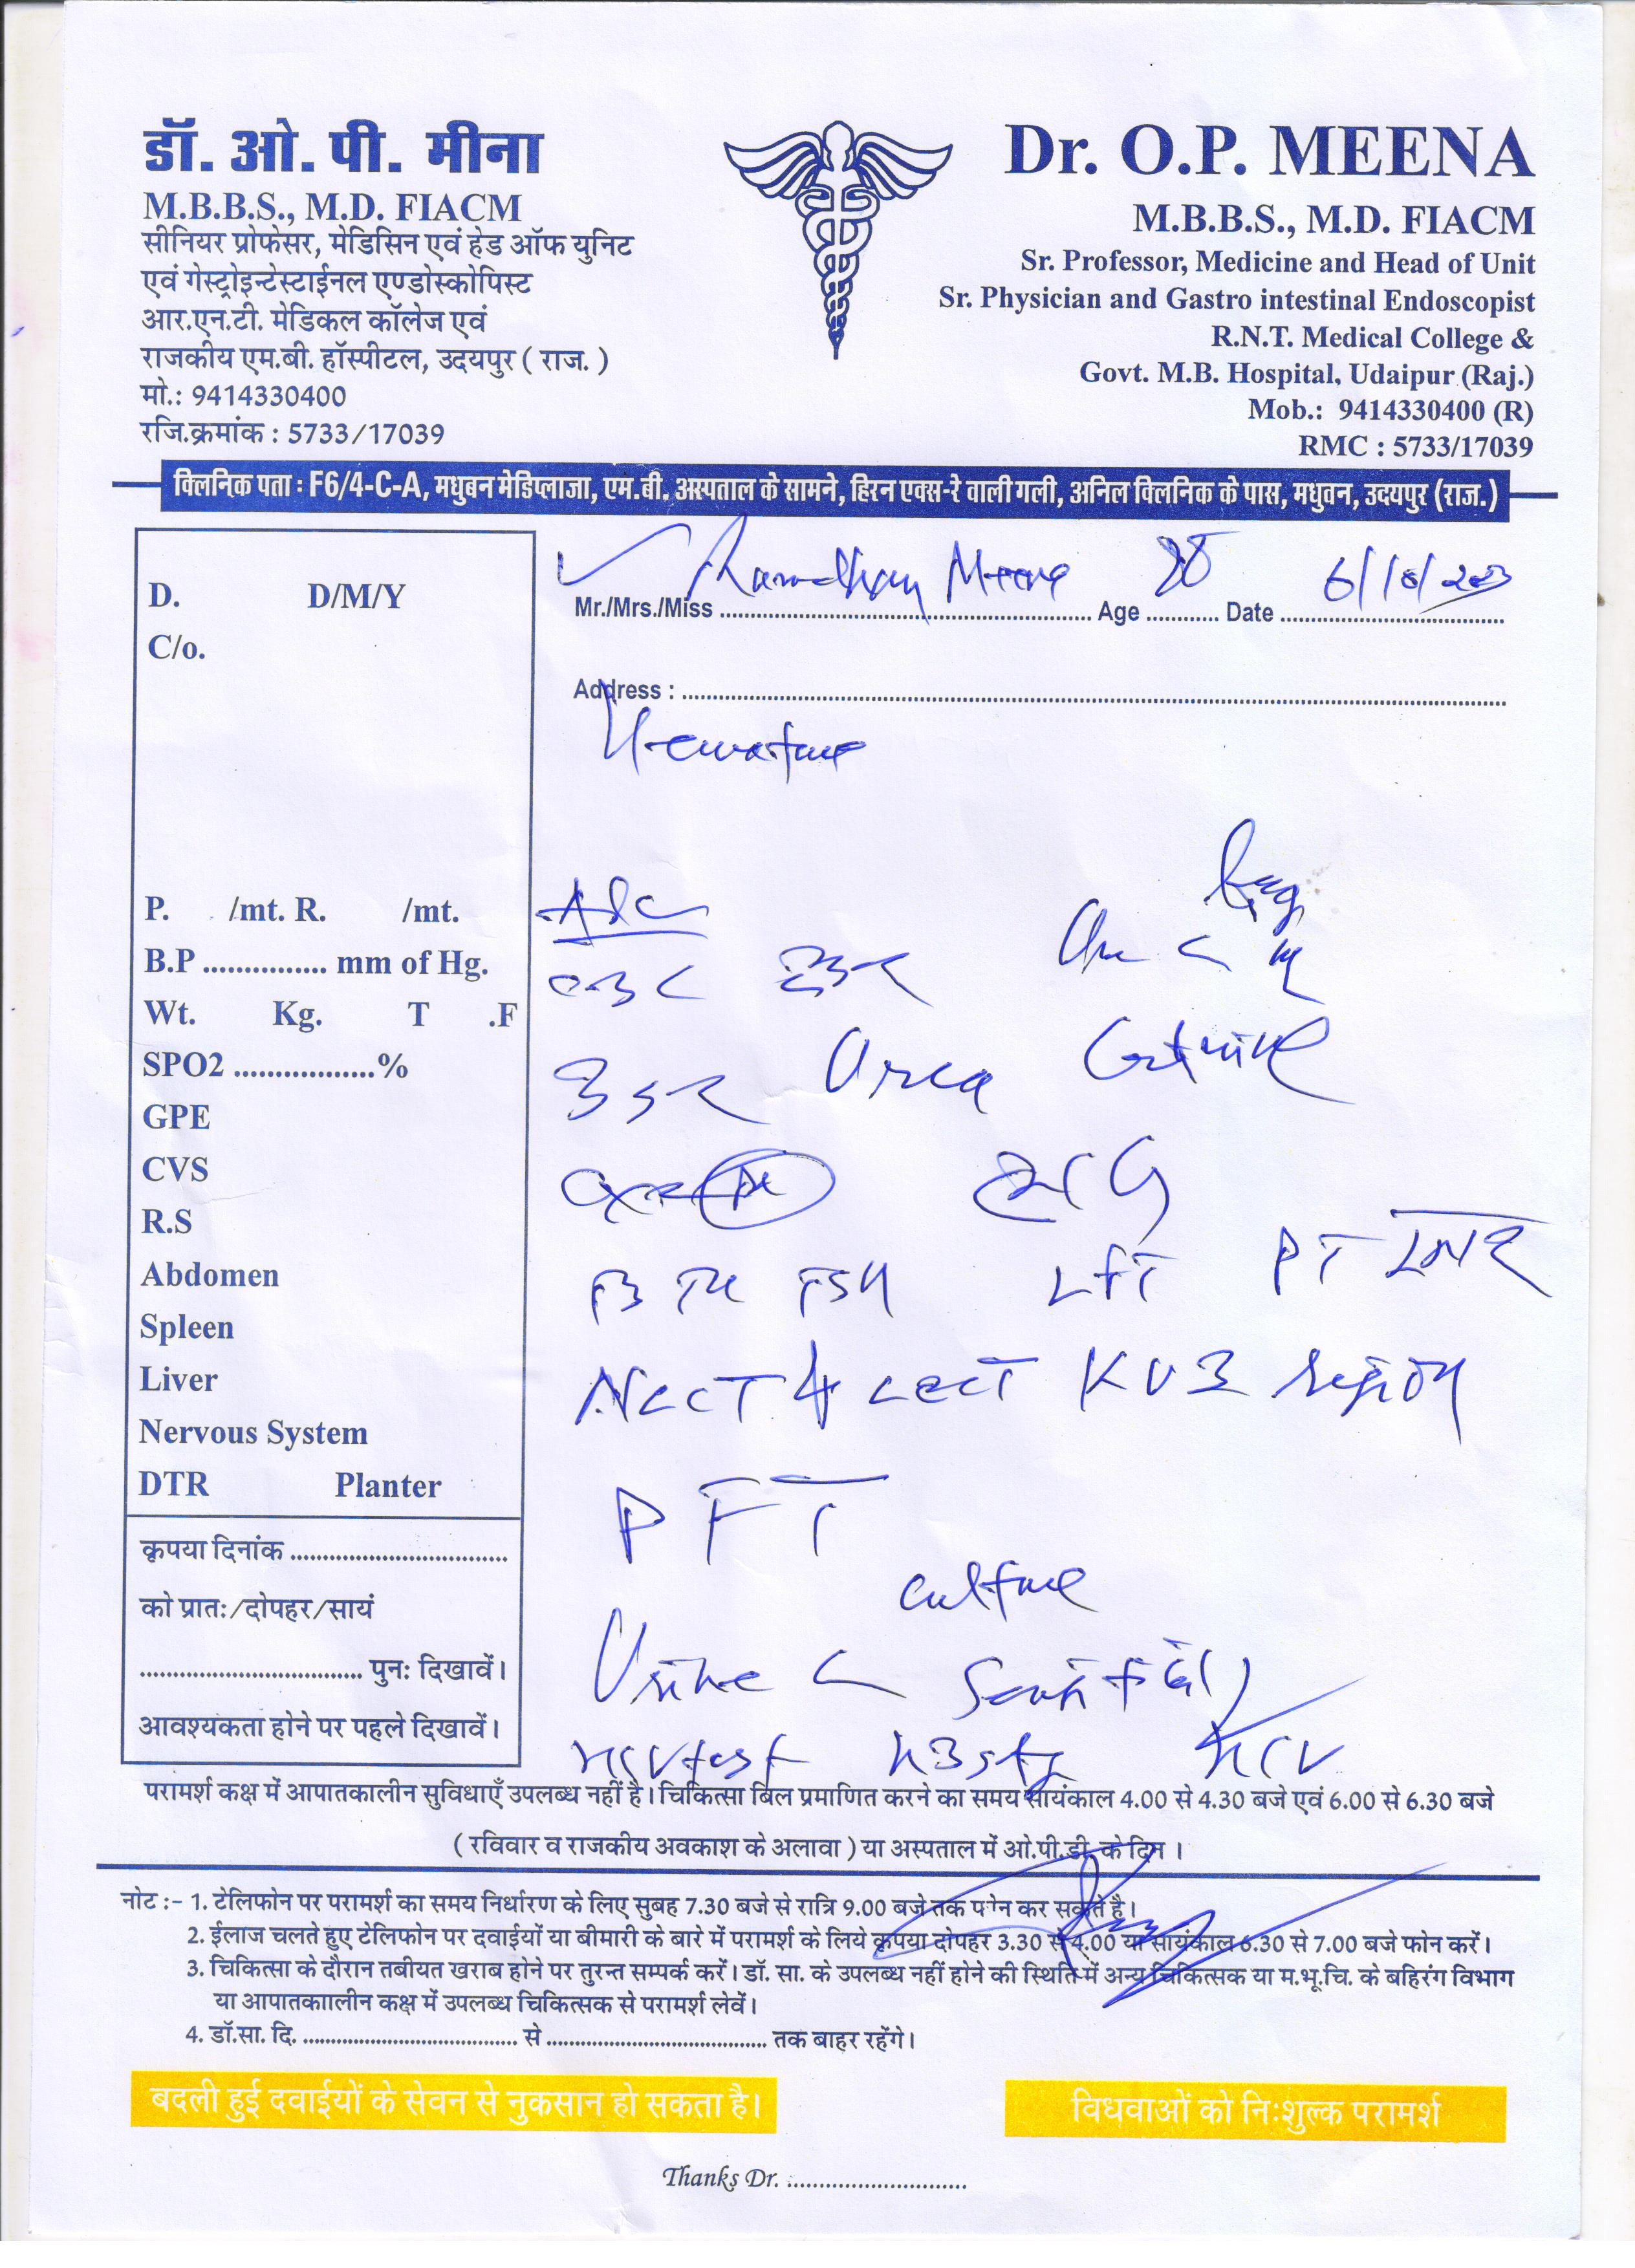 डॉ. ओ. पी. मीना
M.B.B.S., M.D. FIACM
सीनियर प्रोफेसर, मेडिसिन एवं हेड ऑफ युनिट
एवं गेस्ट्रोइन्टेस्टाईनल एण्डोस्कोपिस्ट
आर.एन.टी. मेडिकल कॉलेज एवं
राजकीय एम.बी. हॉस्पीटल, उदयपुर ( राज. )
मो.: 9414330400
रजि.क्रमांक : 5733/17039
Dr. O.P. MEENA
M.B.B.S., M.D. FIACM
Sr. Professor, Medicine and Head of Unit
Sr. Physician and Gastro intestinal Endoscopist
R.N.T. Medical College &
Govt. M.B. Hospital, Udaipur (Raj.)
Mob.: 9414330400 (R)
RMC : 5733/17039
क्लिनिक पता : F6/4-C-A, मधुबन मेडिप्लाजा, एम.बी. अस्पताल के सामने, हिरन एक्स-रे वाली गली, अनिल क्लिनिक के पास, मधुवन, उदयपुर (राज.)
D. D/M/Y
C/o.
P. /mt. R. /mt.
B.P ............... mm of Hg.
Wt. Kg. T .F
SPO2 .................%
GPE
CVS
R.S
Abdomen
Spleen
Liver
Nervous System
DTR Planter
कृपया दिनांक ..................................
को प्रातः/दोपहर/सायं
.................................. पुनः दिखावें।
आवश्यकता होने पर पहले दिखावें।
Mr./Mrs./Miss Ramdhan Meena Age Date
Address :
Urea
T3 T4 TSH LFT PT INR
NCCT & CECT KUB region
PFT
culture
Urine <
HCV
परामर्श कक्ष में आपातकालीन सुविधाएँ उपलब्ध नहीं है। चिकित्सा बिल प्रमाणित करने का समय सायंकाल 4.00 से 4.30 बजे एवं 6.00 से 6.30 बजे
( रविवार व राजकीय अवकाश के अलावा ) या अस्पताल में ओ.पी.डी. के दिन ।
नोट :- 1. टेलिफोन पर परामर्श का समय निर्धारण के लिए सुबह 7.30 बजे से रात्रि 9.00 बजे तक फोन कर सकते है।
2. ईलाज चलते हुए टेलिफोन पर दवाईयों या बीमारी के बारे में परामर्श के लिये कृपया दोपहर 3.30 से 4.00 या सायंकाल 6.30 से 7.00 बजे फोन करें।
3. चिकित्सा के दौरान तबीयत खराब होने पर तुरन्त सम्पर्क करें। डॉ. सा. के उपलब्ध नहीं होने की स्थिति में अन्य चिकित्सक या म.भू.चि. के बहिरंग विभाग
या आपातकाालीन कक्ष में उपलब्ध चिकित्सक से परामर्श लेवें।
4. डॉ.सा. दि. .................................. से .................................. तक बाहर रहेंगे।
बदली हुई दवाईयों के सेवन से नुकसान हो सकता है।
विधवाओं को निःशुल्क परामर्श
Thanks Dr. ............................